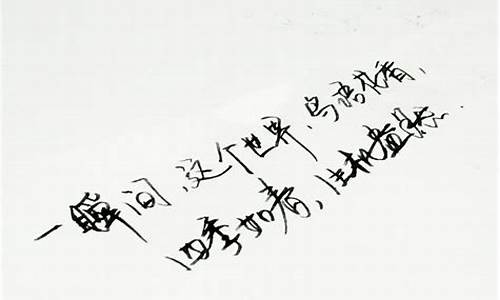 一瞬间、这个世界、鸟语花香、
四季如春、生机盎然.